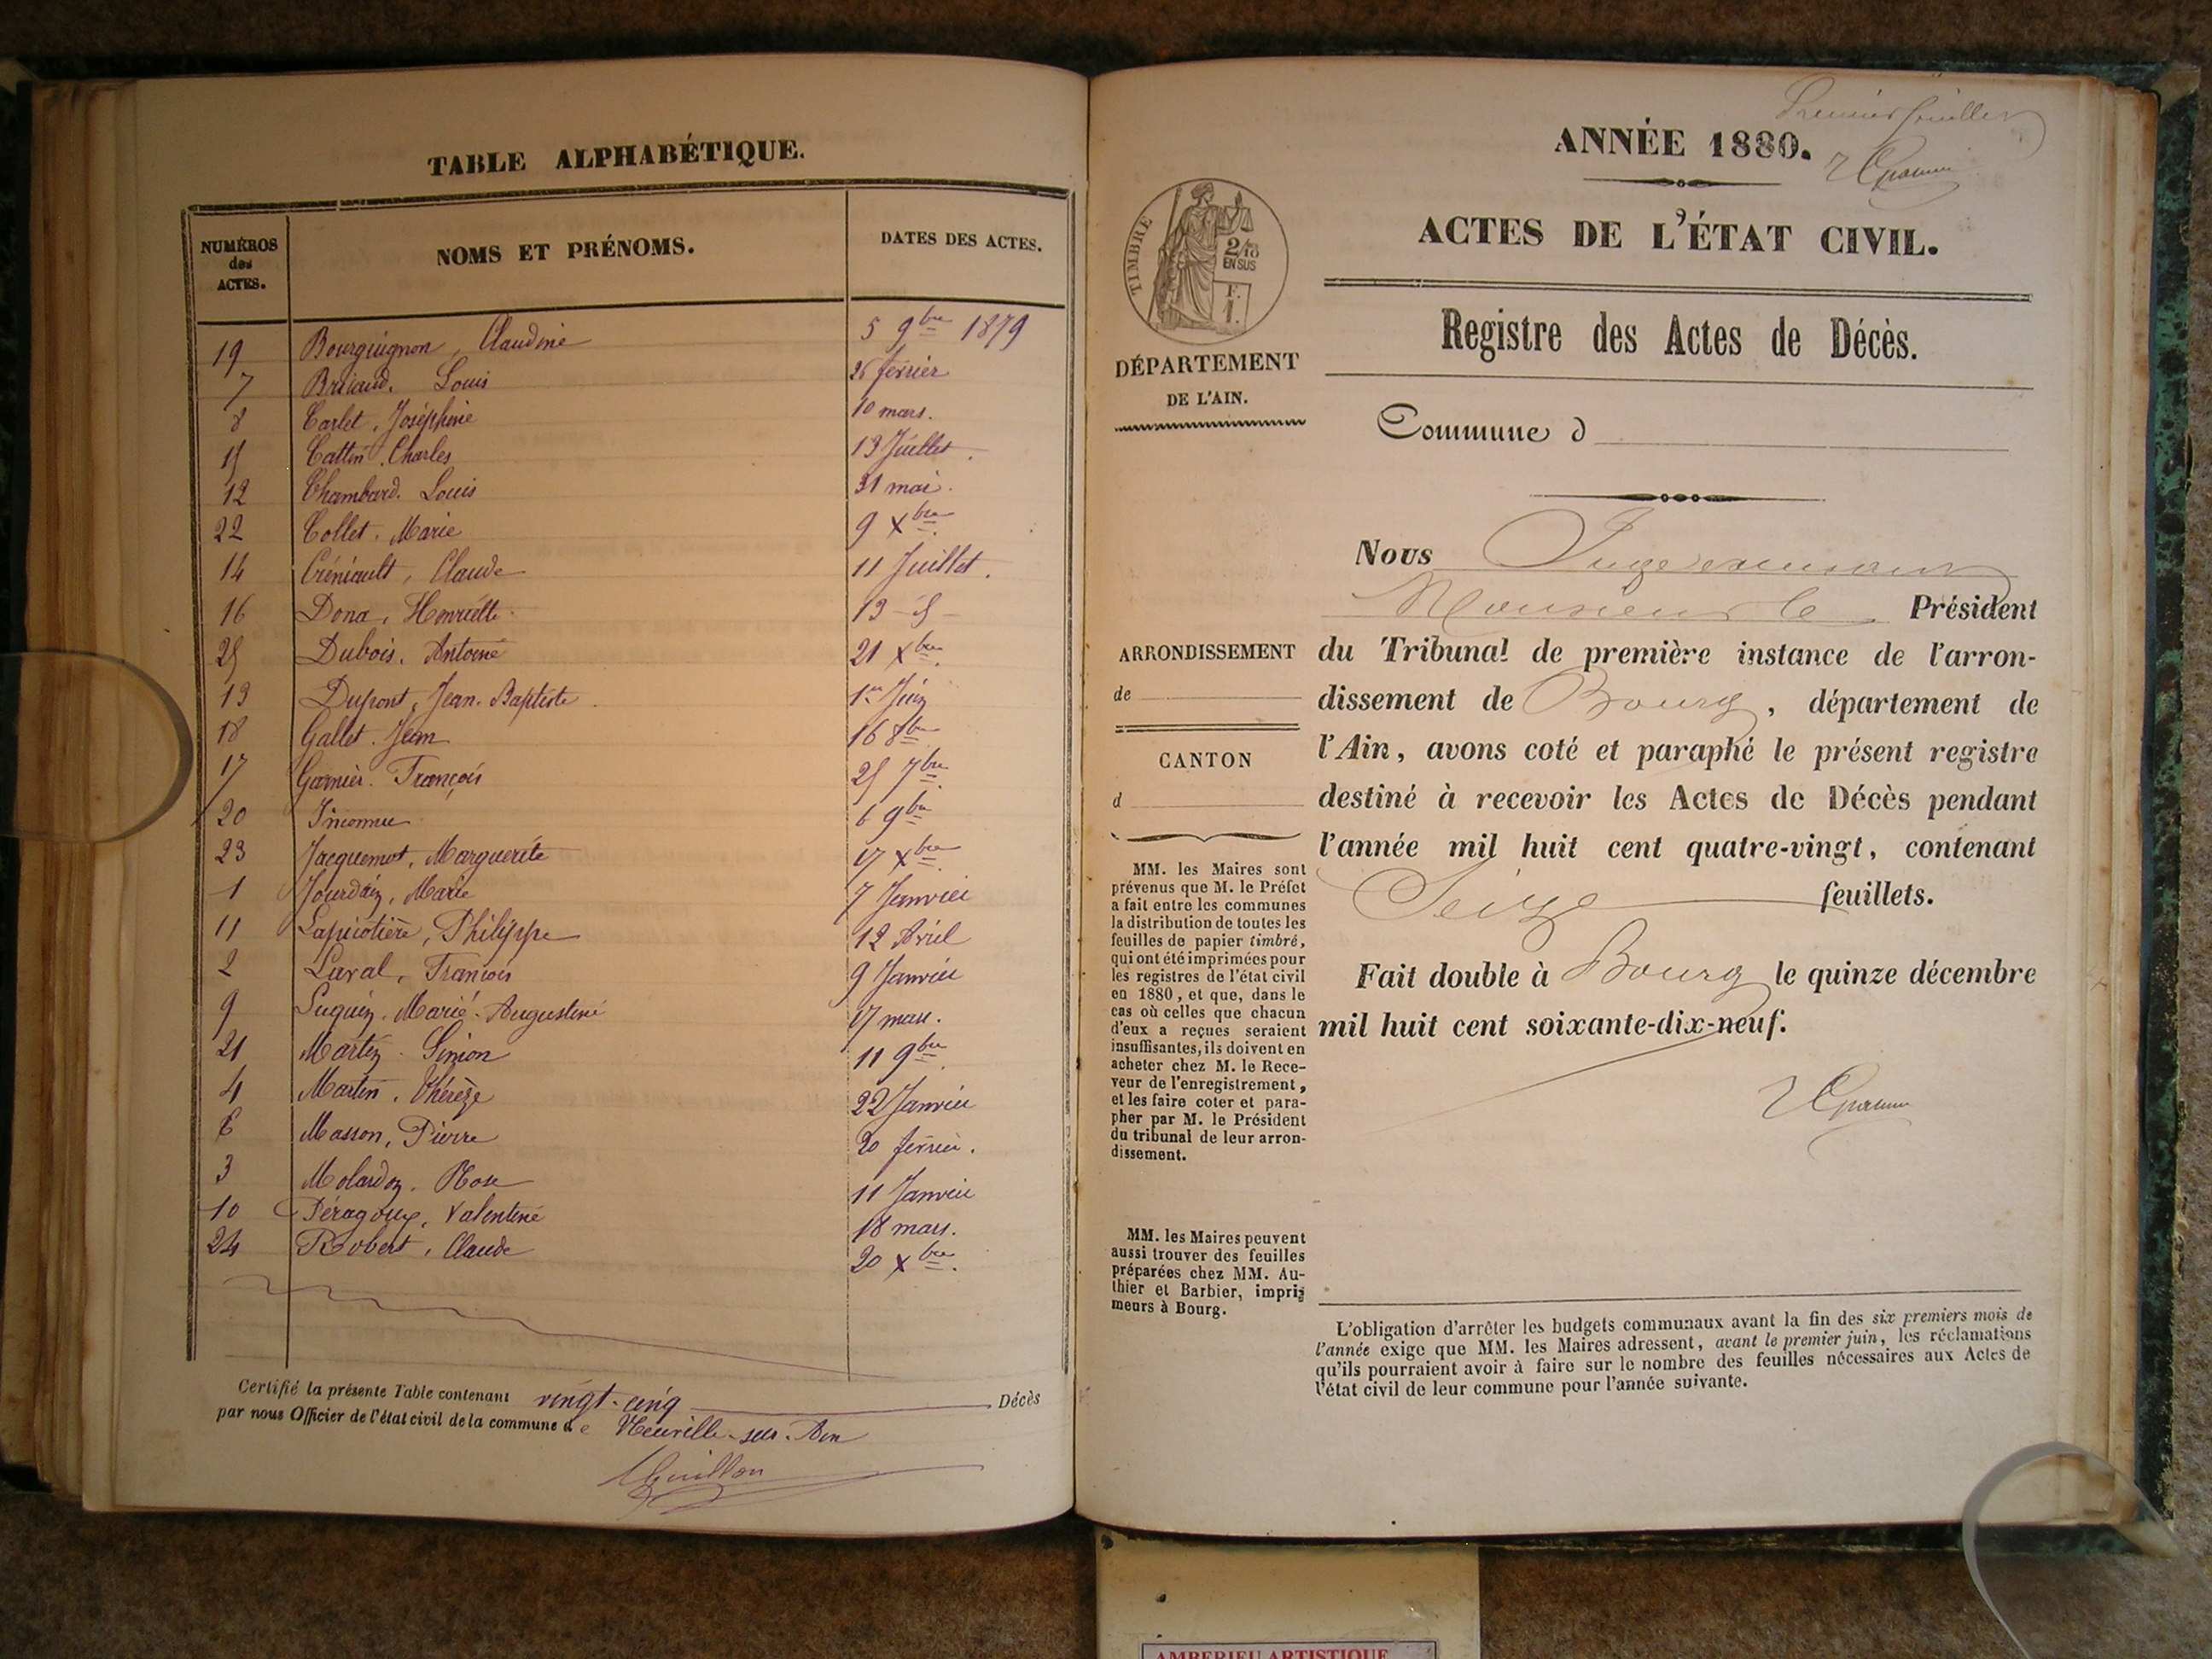 TABLE ALPHABÉTIQUE.
NUMÉROS des ACTES. NOMS ET PRÉNOMS. DATES DES ACTES.
19 Bourguignon, Claudine 5 9bre 1879
7 Louis 26 février
8 Carlet, Joséphine 10 mars.
15 Cattin. Charles 13 Juillet.
12 Chambard. Louis 31 mai.
22 Collet. Marie 9 Xbre
14 Créniault, Claude 11 Juillet.
16 Dona, Henriette. 13 -d-
25 Dubois. Antoine 21 Xbre.
13 Dupont, Jean-Baptiste. 1er Juin
18 Gallet. Jean 16 8bre
17 Garnier. François 25 7bre
20 Inconnu 6 9bre
23 Jacquemet, Marguerite 17 Xbre
1 Jourdain, Marie 7 Janvier
11 Philippe 12 Avril
2 Laval, François 9 Janvier
9 Luquin. Marie-Augustine 17 mars.
21 Martin. Simon 11 9bre.
4 Martin. Thérèze 22 Janvier
6 Masson, Pierre 20 février.
3 Molardon. Rose 11 Janvier
10 Péragoux, Valentine 18 mars.
24 Robert, Claude 20 Xbre.
Certifié la présente Table contenant vingt-cinq Décès
par nous Officier de l'état civil de la commune de Neuville-sur-Ain
Premier feuillet
ANNÉE 1880.
ACTES DE L'ÉTAT CIVIL.
Registre des Actes de Décès.
TIMBRE
2/10
EN SUS
F.
1.
DÉPARTEMENT
DE L'AIN.
Commune d
ARRONDISSEMENT
de
CANTON
d
MM. les Maires sont
prévenus que M. le Préfet
a fait entre les communes
la distribution de toutes les
feuilles de papier timbré,
qui ont été imprimées pour
les registres de l'état civil
en 1880, et que, dans le
cas où celles que chacun
d'eux a reçues seraient
insuffisantes, ils doivent en
acheter chez M. le Rece-
veur de l'enregistrement,
et les faire coter et para-
pher par M. le Président
du tribunal de leur arron-
dissement.
MM. les Maires peuvent
aussi trouver des feuilles
préparées chez MM. Au-
thier et Barbier, impri-
meurs à Bourg.
Nous Juge
Monsieur le Président
du Tribunal de première instance de l'arron-
dissement de Bourg, département de
l'Ain, avons coté et paraphé le présent registre
destiné à recevoir les Actes de Décès pendant
l'année mil huit cent quatre-vingt, contenant
Seize feuillets.
Fait double à Bourg le quinze décembre
mil huit cent soixante-dix-neuf.
L'obligation d'arrêter les budgets communaux avant la fin des six premiers mois de
l'année exige que MM. les Maires adressent, avant le premier juin, les réclamations
qu'ils pourraient avoir à faire sur le nombre des feuilles nécessaires aux Actes de
l'état civil de leur commune pour l'année suivante.
AMBERIEU ARTISTIQUE